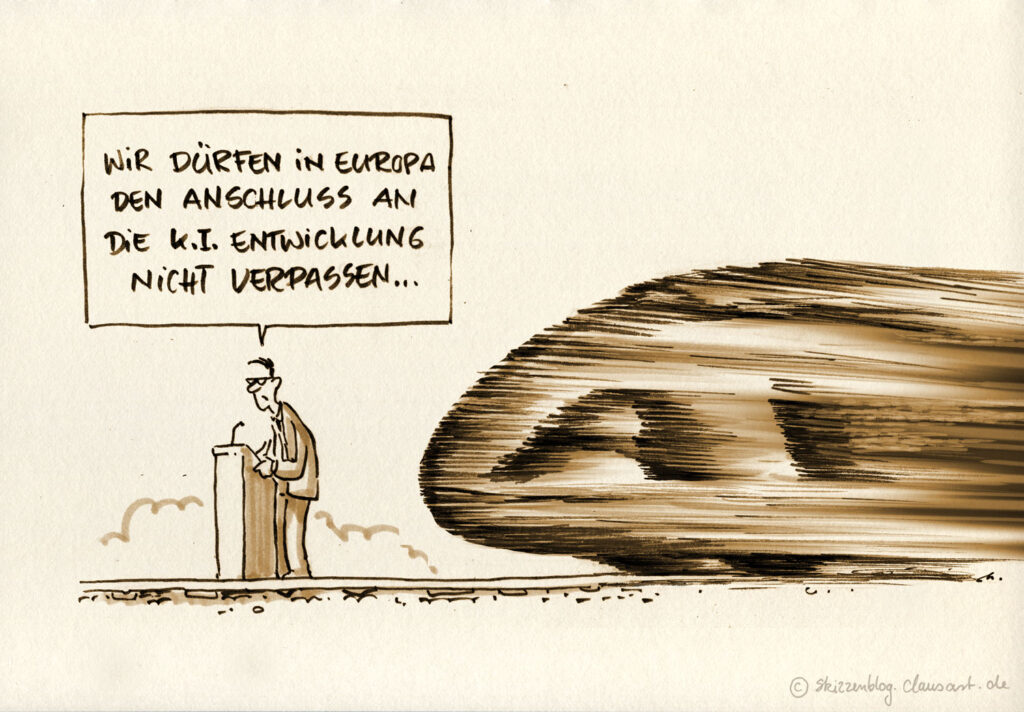 WIR DÜRFEN IN EUROPA
DEN ANSCHLUSS AN
DIE K.I. ENTWICKLUNG
NICHT VERPASSEN...
AI
© Skizzenblog.clausast.de